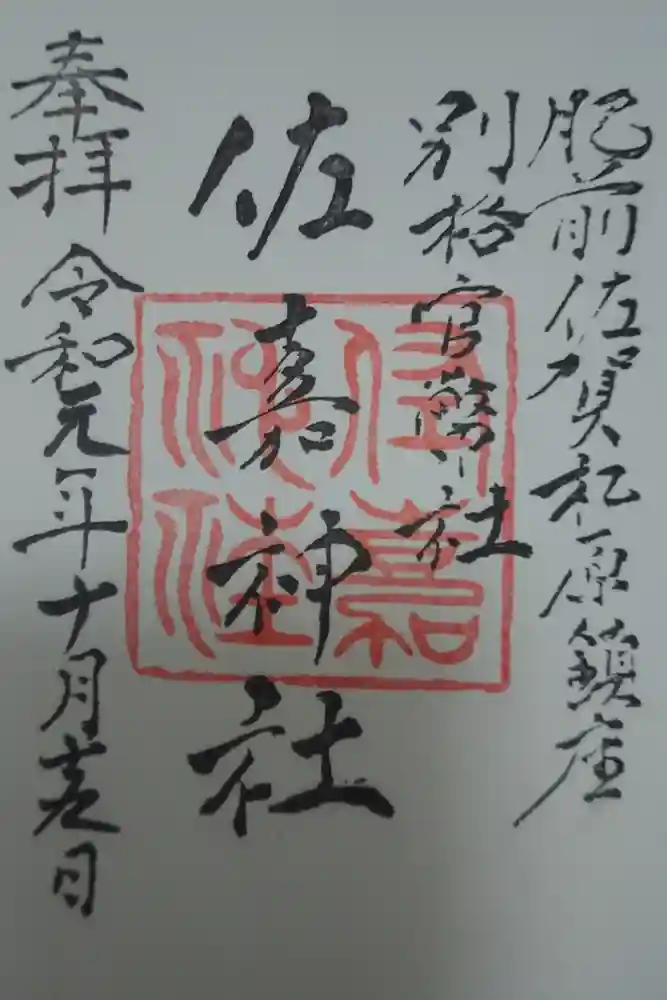 肥前佐賀松原鎮座
別格官幣社
佐嘉神社
佐嘉
神社
奉拝 令和元年十月壱日